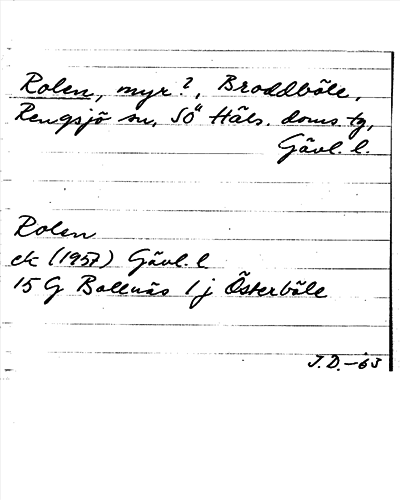 Rolen, myr?, Broddböle,
Rengsjö sn, SÖ Häls. doms. tg,
Gävl. l.
Rolen
ek (1957) Gävl. l
15 G Bollnäs 1 j Österböle
J.D.-63